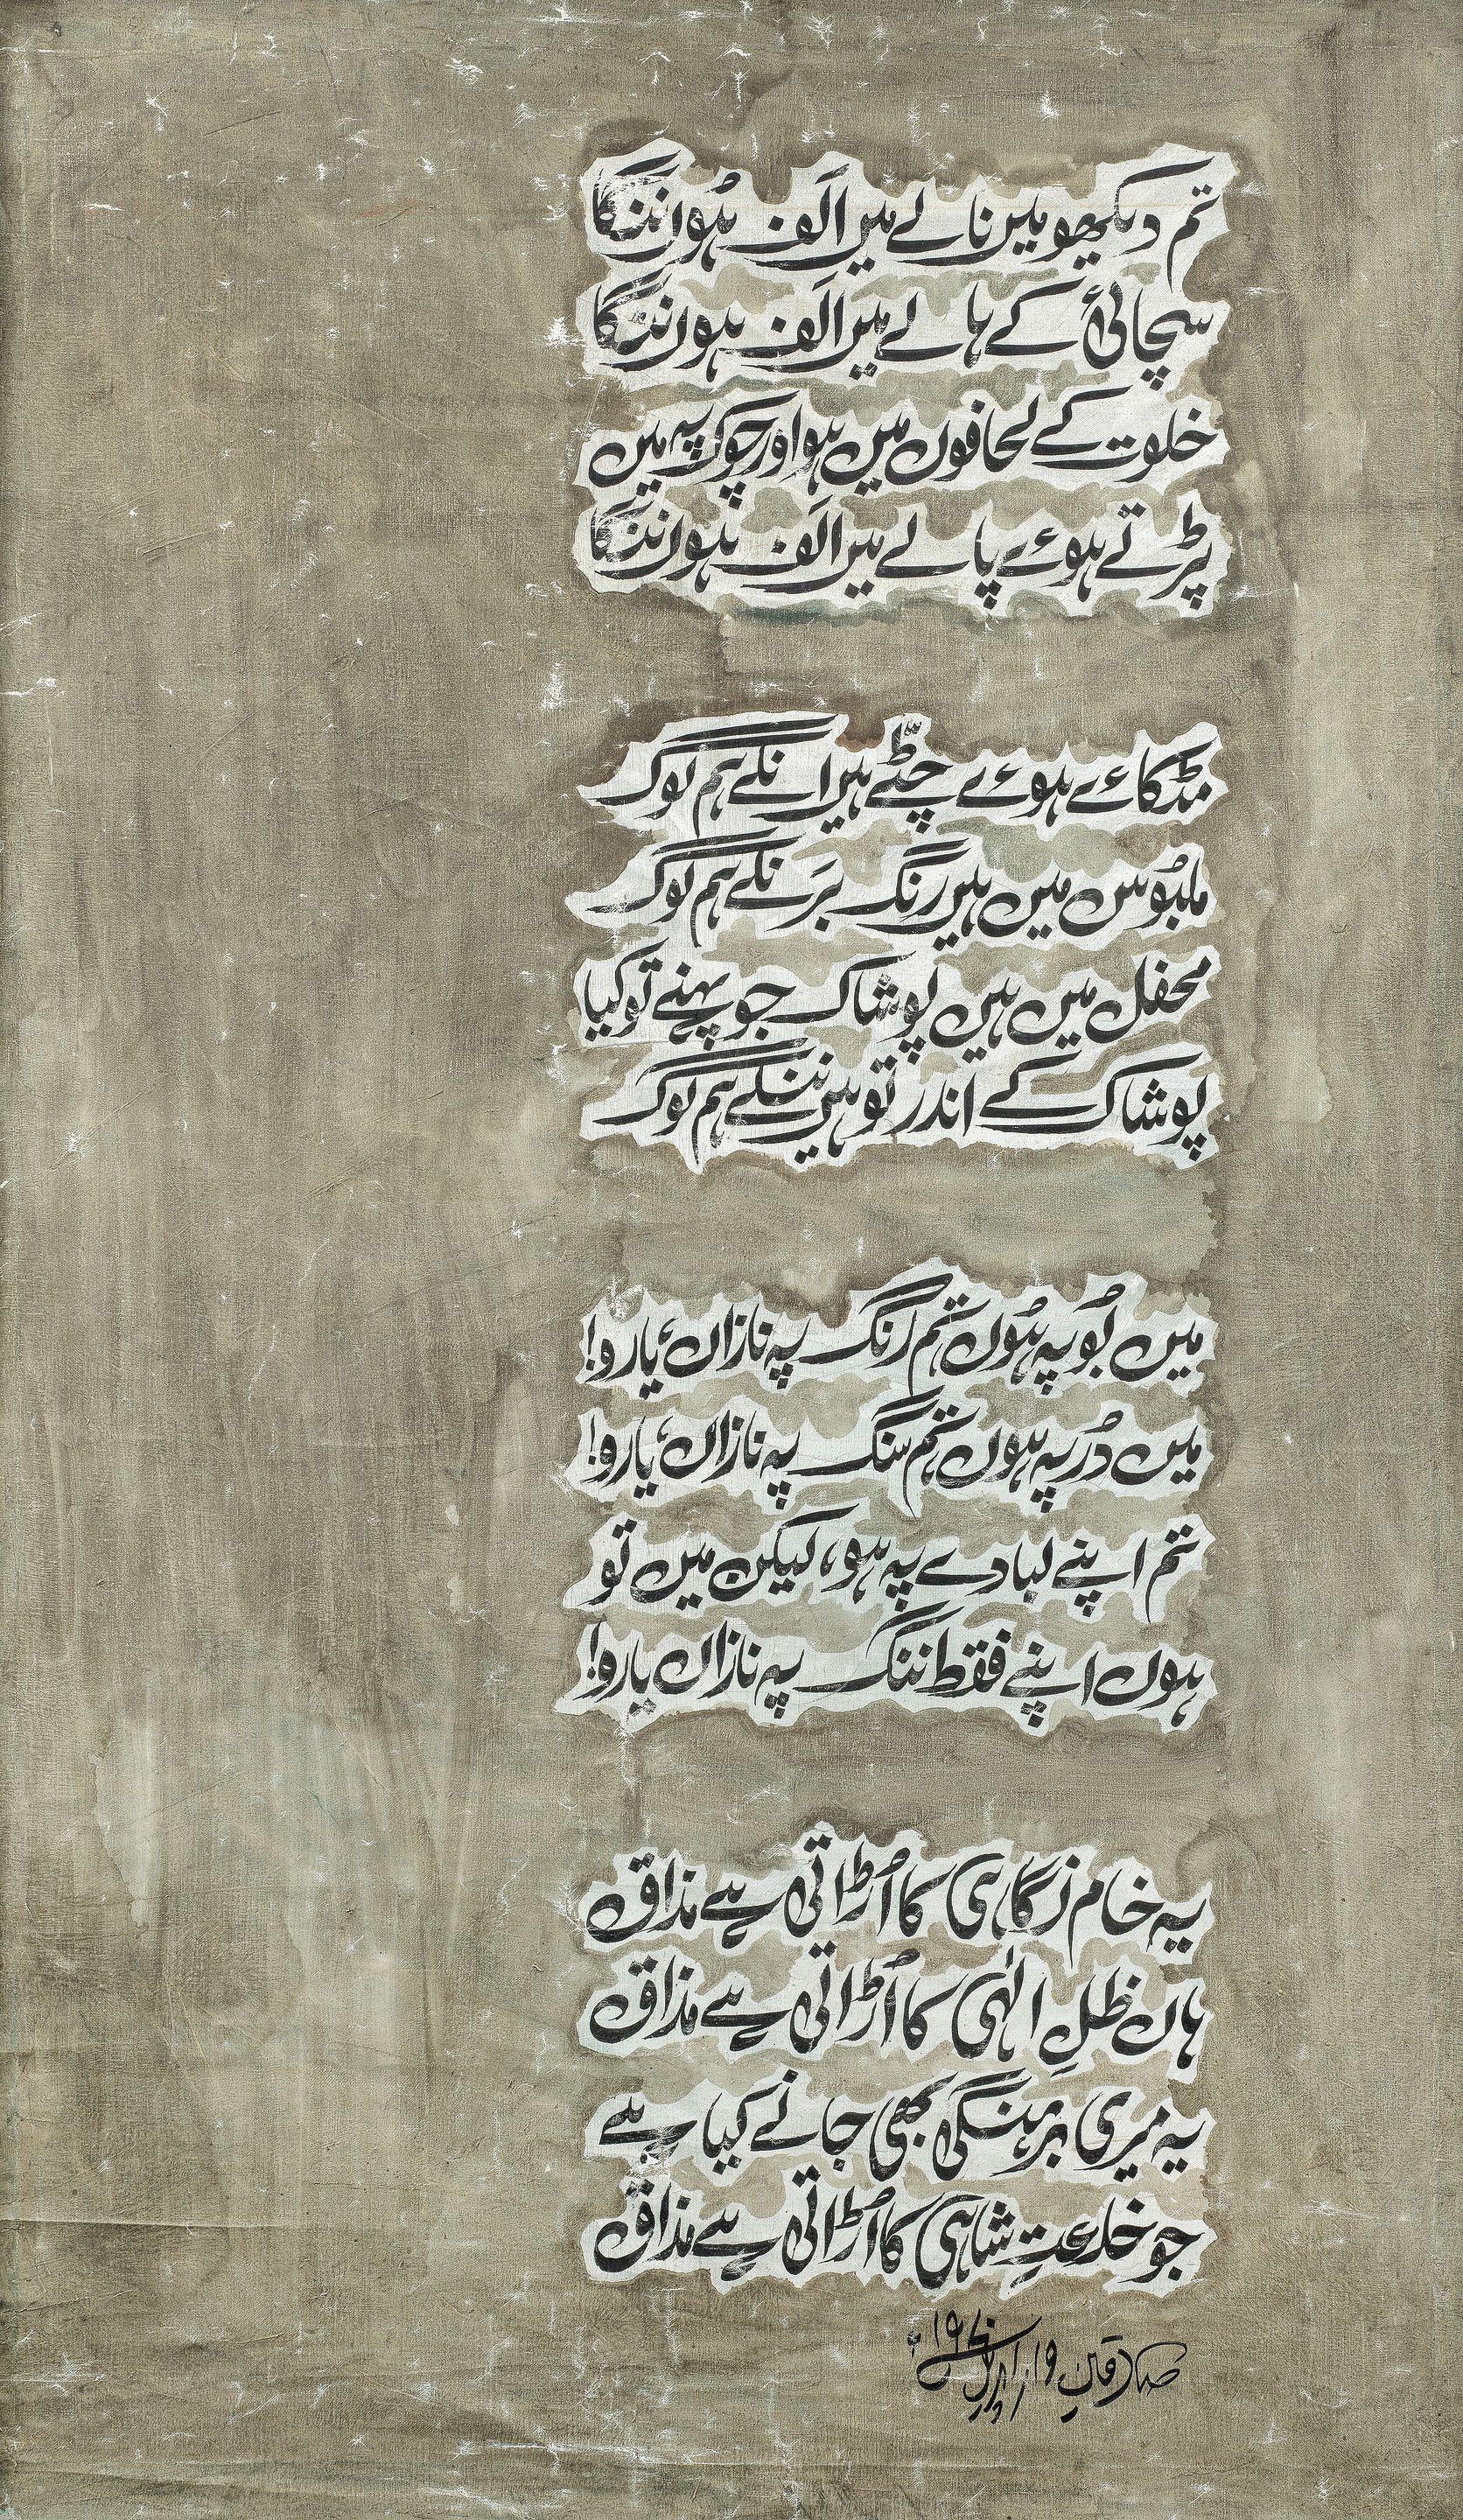 تم دیکھو میں نالے میں اَلَف ہُوں ننگا
سچائی کے ہالے میں اَلَف ہوں ننگا
خلوت کے لحافوں میں ہو اور چوک پہ میں
پڑتے ہوئے پالے میں اَلَف ہوں ننگا
مٹکائے ہوئے چٹے ہیں انگے ہم لوگ
ملبُوس میں ہیں رنگ بَرَنگے ہم لوگ
محفل میں ہیں پوشاک جو پہنے تو کیا
پوشاک کے اندر تو ہیں ننگے ہم لوگ
میں بُو پہ ہُوں تم رنگ پہ نازاں، یارو!
میں دُر پہ ہوں تم سنگ پہ نازاں، یارو!
تم اپنے لبادے پہ ہو، لیکن میں تو
ہوں اپنے فقط ننگ پہ نازاں یارو!
یہ خام نگاہی کا اُڑاتی ہے مذاق
ہاں ظلِ الٰہی کا اُڑاتی ہے مذاق
یہ میری برہنگی بھی جانے کیا ہے
جو خلعتِ شاہی کا اُڑاتی ہے مذاق
صادقین ۱۹ اپریل